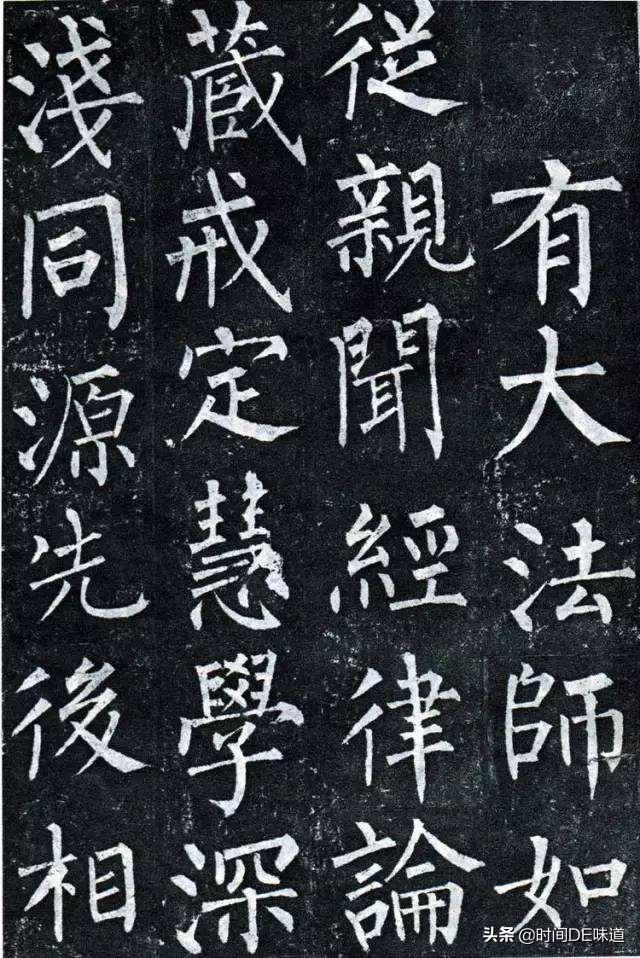 有大法師如
從親聞經律論
藏戒定慧學深
淺同源先後相
头条 @时间DE味道